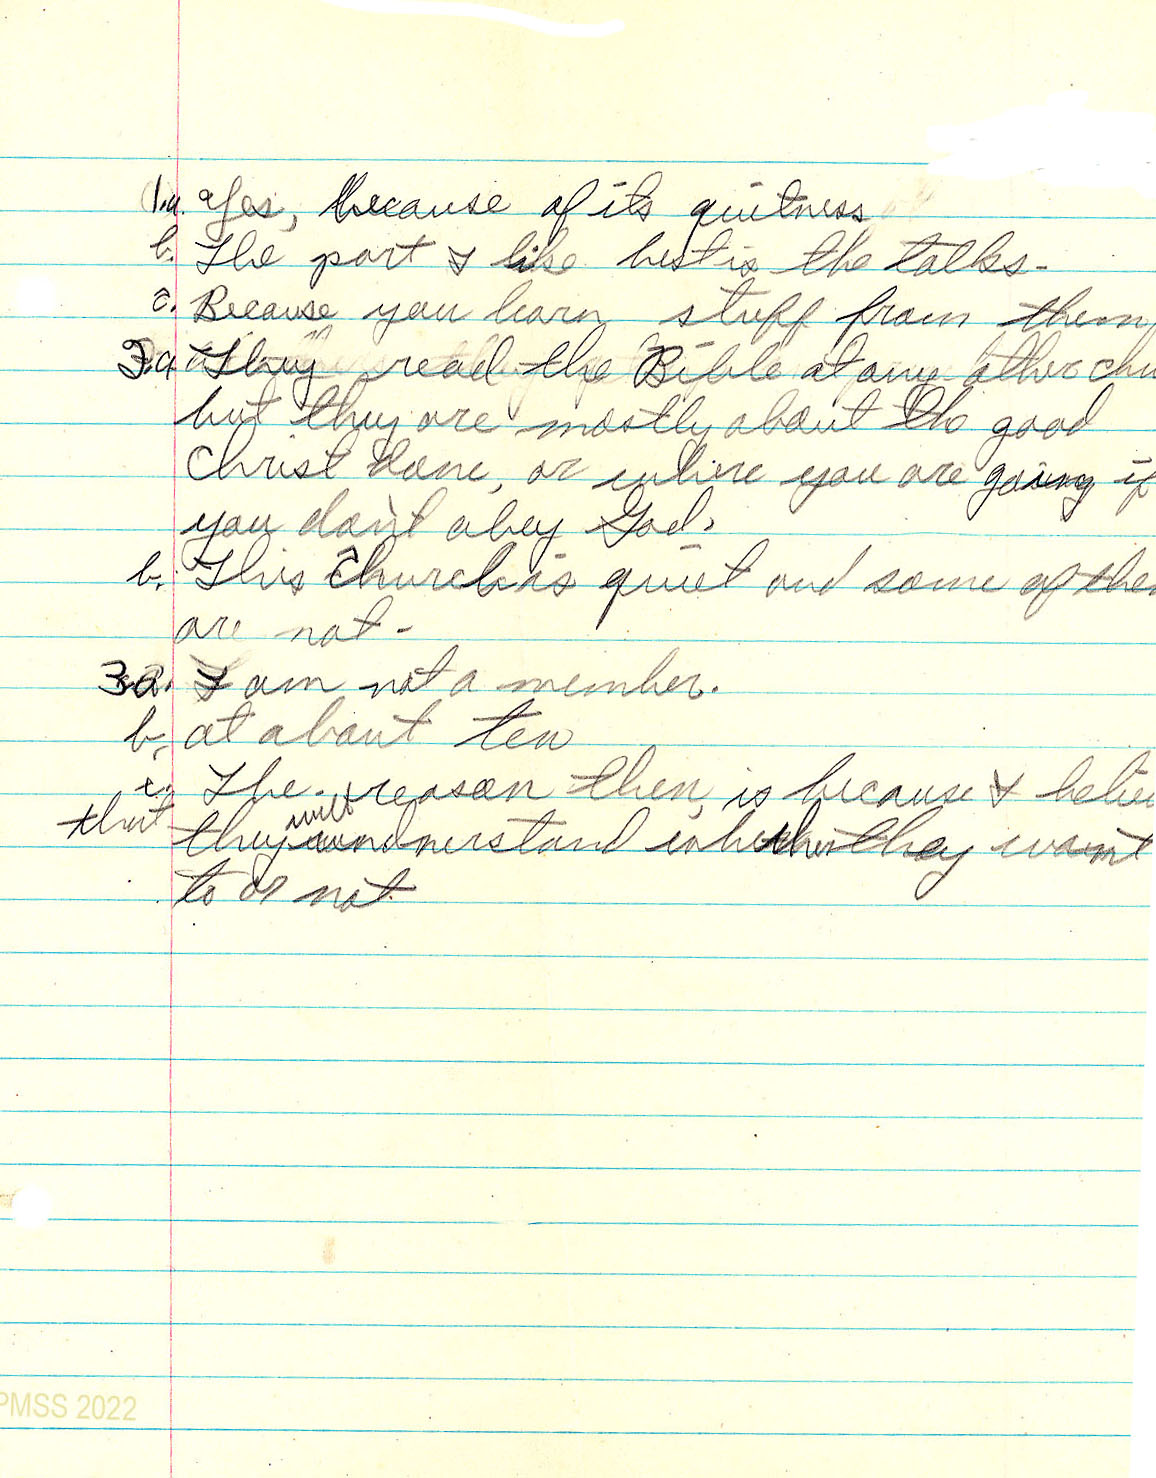 1.a. Yes, because of its quitness
b. The part I like best is the talks.
c. Because you learn stuff from them
a. They read the Bible at any other chu
but they are mostly about the good
Christ done, or where you are going if
you don't obey God.
b. This Church is quiet and some of them
are not.
3a. I am not a member.
b. at about ten
c. The reason then, is because I belie
that they will understand whether they want
to or not.
PMSS 2022